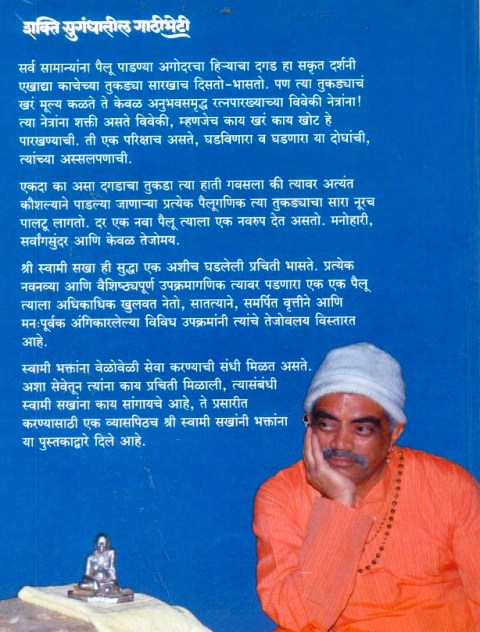 शक्ति सुगंधातील गाठीभेटी
सर्व सामान्यांना पैलू पाडण्या अगोदरचा हिऱ्याचा दगड हा सकृत दर्शनी
एखाद्या काचेच्या तुकड्या सारखाच दिसतो-भासतो. पण त्या तुकड्याचं
खरं मूल्य कळते ते केवळ अनुभवसमृद्ध रत्नपारख्याच्या विवेकी नेत्रांना!
त्या नेत्रांना शक्ती असते विवेकी, म्हणजेच काय खरं काय खोट हे
पारखण्याची. ती एक परिक्षाच असते, घडविणारा व घडणारा या दोघांची,
त्यांच्या अस्सलपणाची.
एकदा का असा दगडाचा तुकडा त्या हाती गवसला की त्यावर अत्यंत
कौशल्याने पाडल्या जाणाऱ्या प्रत्येक पैलूगणिक त्या तुकड्याचा सारा नूरच
पालटू लागतो. दर एक नवा पैलू त्याला एक नवरुप देत असतो. मनोहारी,
सर्वांगसुंदर आणि केवळ तेजोमय.
श्री स्वामी सखा ही सुद्धा एक अशीच घडलेली प्रचिती भासते. प्रत्येक
नवनव्या आणि वैशिष्ठ्यपूर्ण उपक्रमागणिक त्यावर पडणारा एक एक पैलू
त्याला अधिकाधिक खुलवत नेतो, सातत्याने, समर्पित वृत्तीने आणि
मनःपूर्वक अंगिकारलेल्या विविध उपक्रमांनी त्यांचे तेजोवलय विस्तारत
आहे.
स्वामी भक्तांना वेळोवेळी सेवा करण्याची संधी मिळत असते.
अशा सेवेतून त्यांना काय प्रचिती मिळाली, त्यासंबंधी
स्वामी सखांना काय सांगायचे आहे, ते प्रसारीत
करण्यासाठी एक व्यासपिठच श्री स्वामी सखांनी भक्तांना
या पुस्तकाद्वारे दिले आहे.